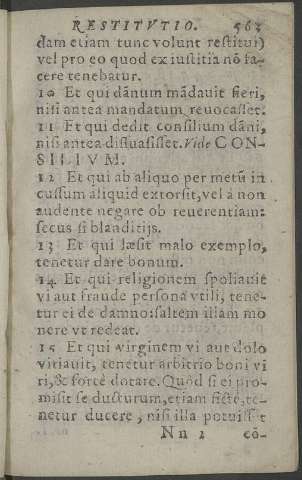 RESTITVTIO. 563
dam etiam tunc volunt restitui)
vel pro eo quod ex iustitia nō fa-
cere tenebatur.
10 Et qui dānum mādavit fieri,
nisi antea mandatum revocasset.
11 Et qui dedit consilium dāni,
nisi antea disuasisset. Vide CON-
SILIVM.
12 Et qui ab aliquo per metū in
cussum aliquid extorsit, vel à non
audente negare ob reverentiam:
secus si blanditijs.
13 Et qui læsit malo exemplo,
tenetur dare bonum.
14 Et qui religionem spoliavit
vi aut fraude persona vtili, tene-
tur ei de damno: saltem illam mo
nere vt redeat.
15 Et qui virginem vi aut dolo
vitiavit, tenetur arbitrio boni vi
ri, & forte dotare. Quòd si ei pro-
misit se ducturum, etiam fictè, te-
netur ducere, nisi illa potuisset
Nn 2 cō-